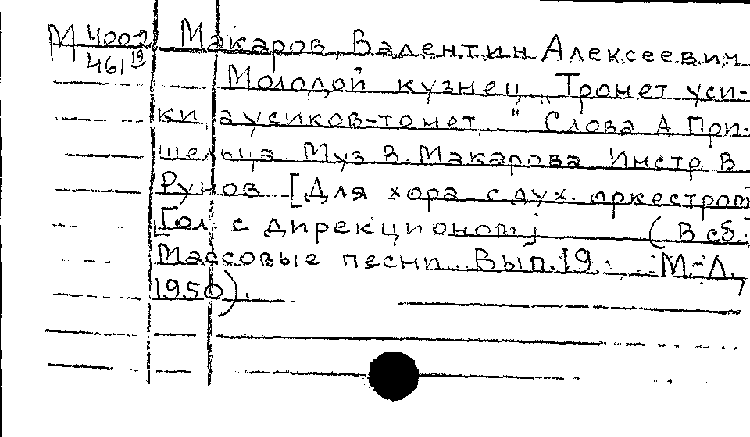 М 4000 Макаров, Валентин Алексеевич
461 19
Молодой кузнец „Тронет уси-
ки, а усиков-то нет..." Слова А. При-
шельца Муз В. Макарова Инстр В.
Рунов [Для хора с дух. оркестром
Гол с дирекционом] (В сб:
Массовые песни. Вып. 19. М-Л,
1950).